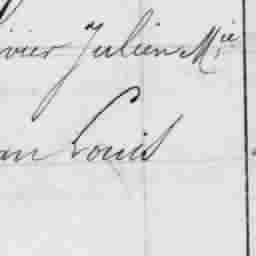 ivier Julien Mie
an Louis